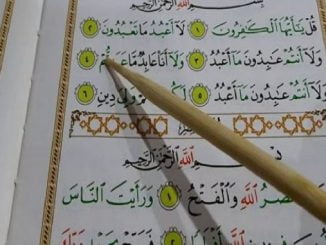 بِسْمِ اللَّهِ الرَّحْمَٰنِ الرَّحِيمِ
قُلْ يَٰٓأَيُّهَا الْكَٰفِرُونَ ١ لَآ أَعْبُدُ مَا تَعْبُدُونَ ٢
وَلَآ أَنتُمْ عَٰبِدُونَ مَآ أَعْبُدُ ٣ وَلَآ أَنَا۠ عَابِدٌ مَّا ٤
وَلَآ أَنتُمْ عَٰبِدُونَ مَآ أَعْبُدُ ٥ وَلِيَ دِينِ ٦
بِسْمِ اللَّهِ الرَّحْمَٰنِ الرَّحِيمِ
اللَّهِ وَالْفَتْحُ ١ وَرَأَيْتَ النَّاسَ
اللَّهِ أَفْوَاجًا ٢ فَسَبِّحْ